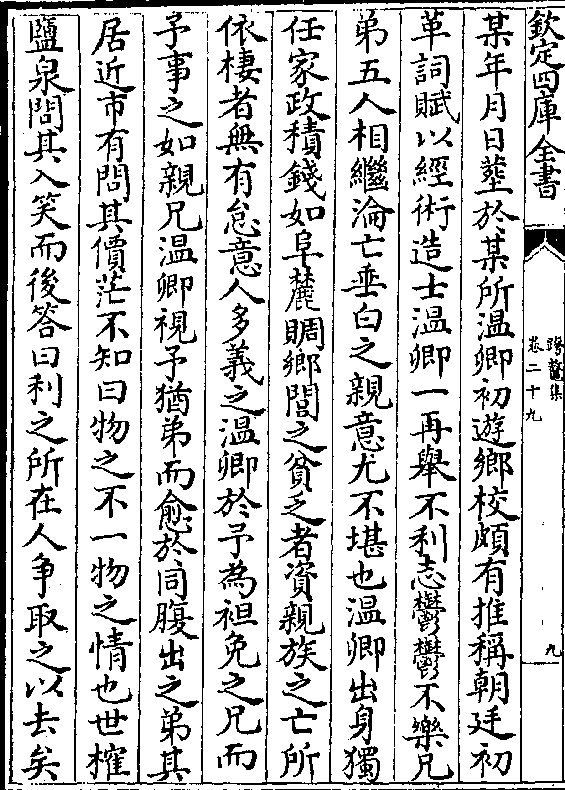 欽定四庫全書
跨鼇集
卷二十九
九
某年月日塟於某所温卿初遊鄉校頗有推稱朝廷初
革詞賦以經術造士温卿一再舉不利志鬱鬱不樂凡
弟五人相繼淪亡垂白之親意尤不堪也温卿出身獨
任家政積錢如阜麓賙鄉閭之貧乏者資親族之亡所
依棲者無有怠意人多義之温卿於予為袒免之兄而
予事之如親兄温卿視予猶弟而愈於同腹出之弟其
居近市有問其價茫不知曰物之不一物之情也世榷
鹽泉問其入笑而後答曰利之所在人争取之以去矣